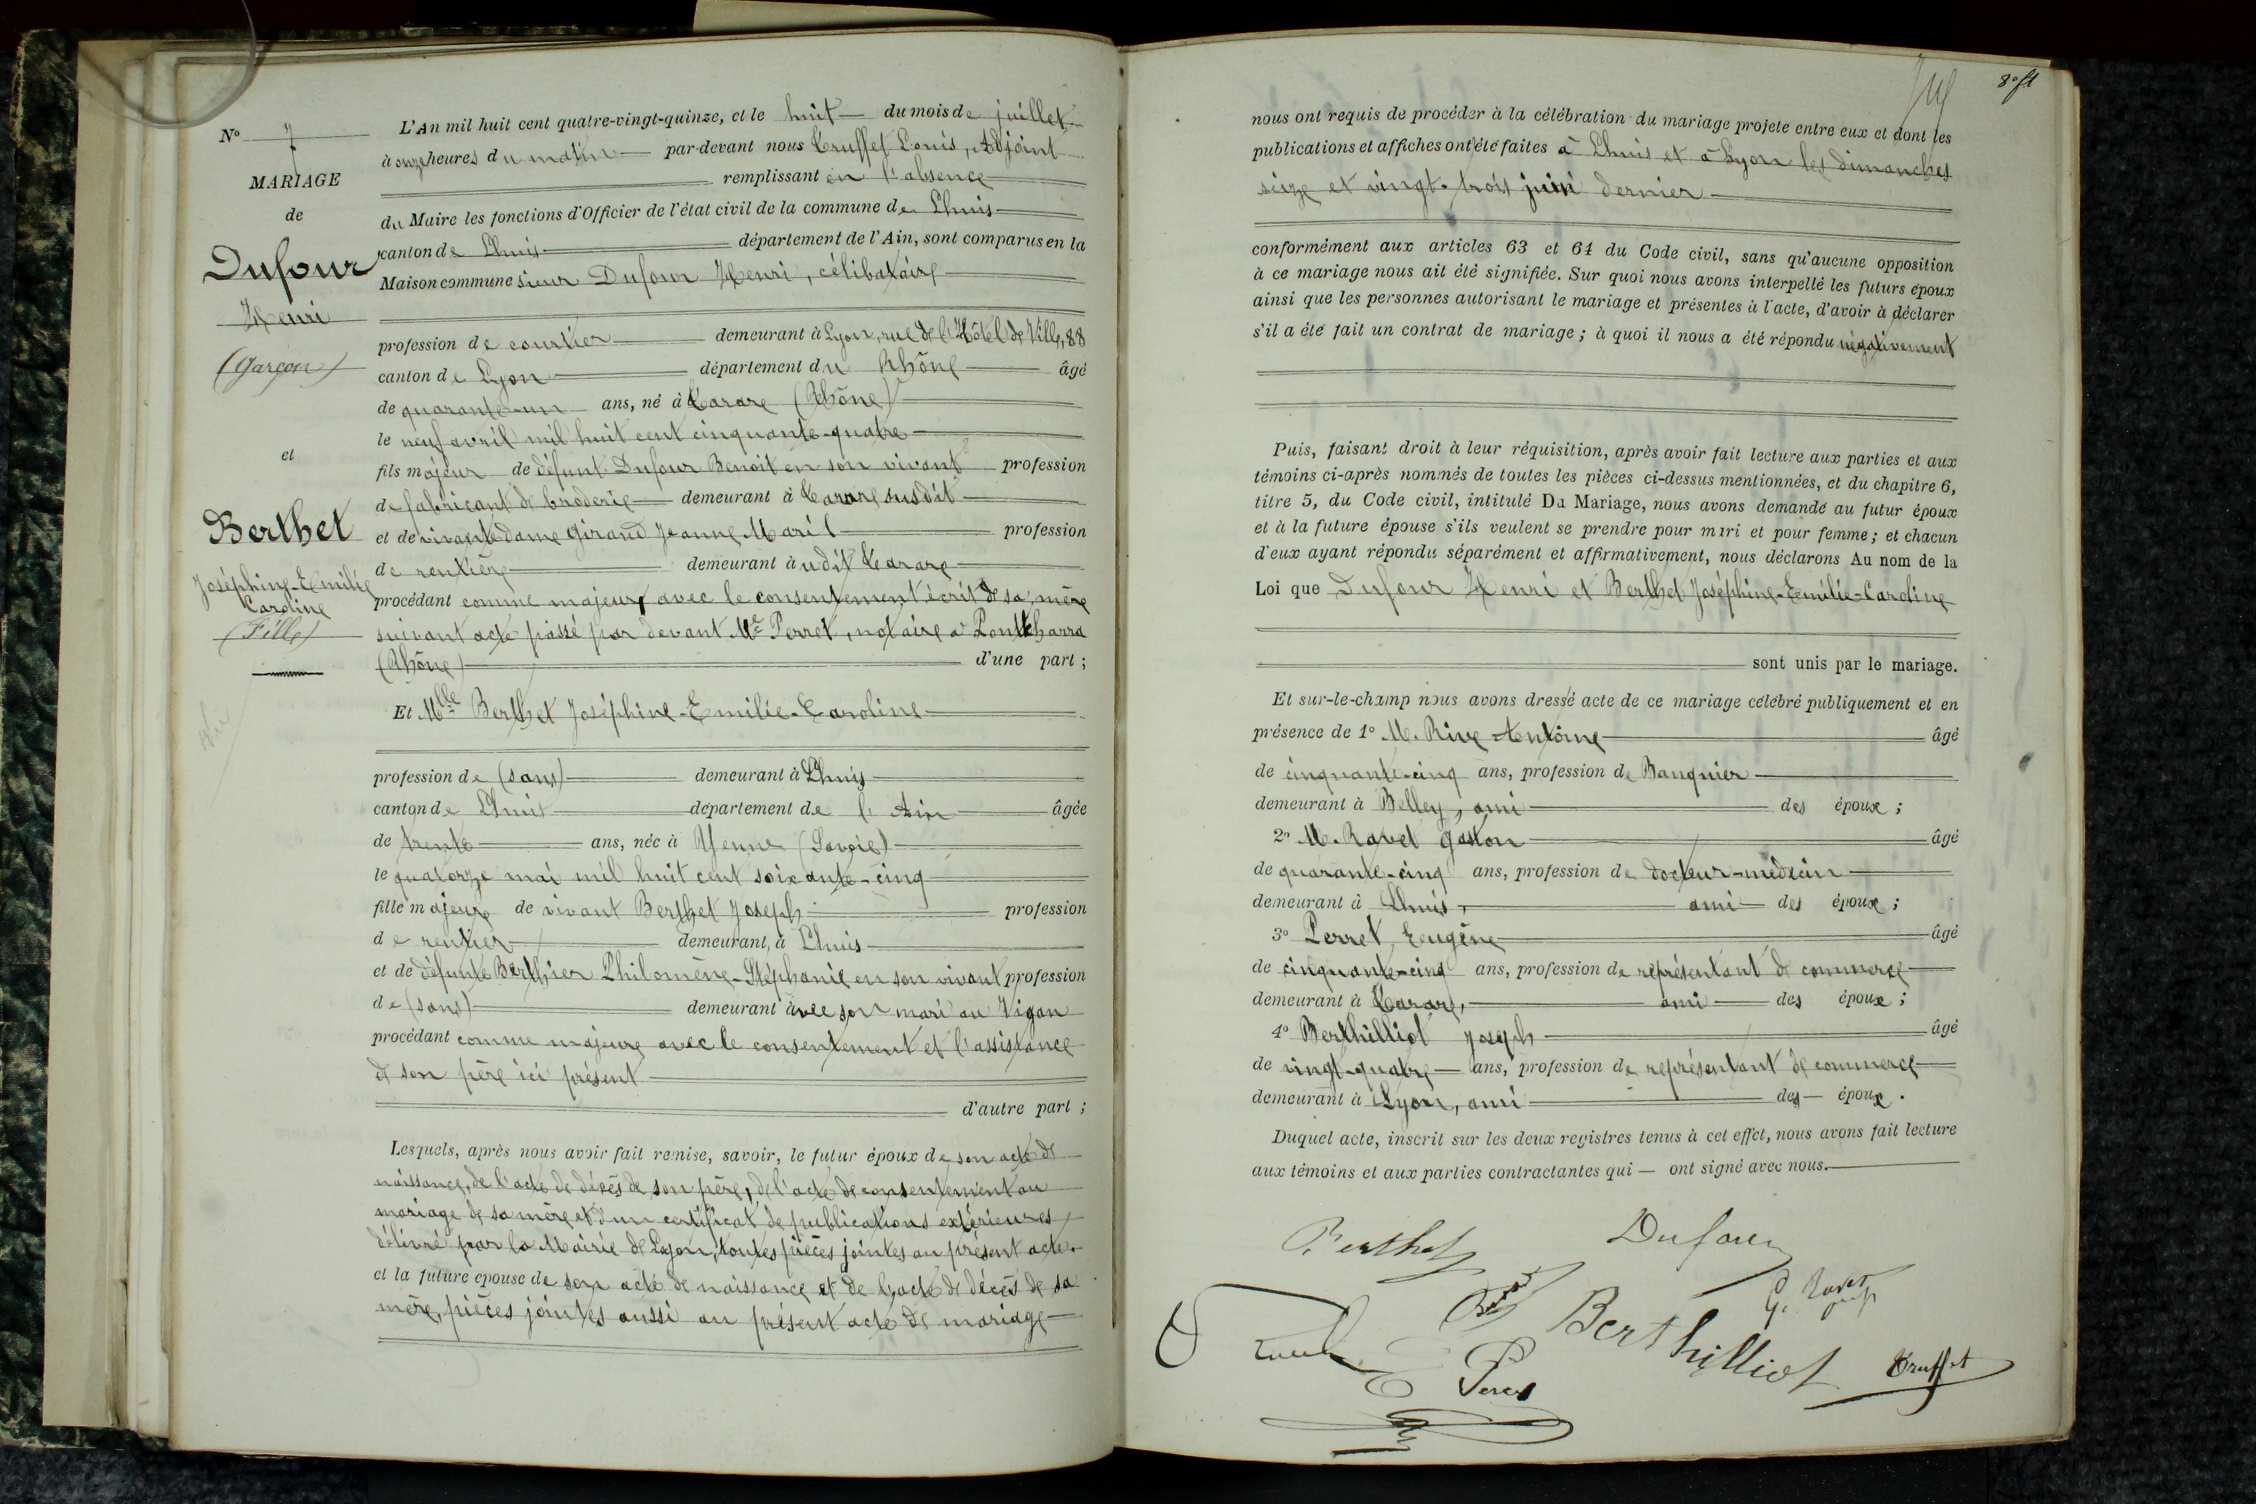 N° 7
MARIAGE
de
Dufour
Henri
(Garçon)
et
Berthet
Joséphine-Emilie
Caroline
(Fille)
Vu
L'An mil huit cent quatre-vingt-quinze, et le huit du mois de juillet
à onze heures du matin par-devant nous Truffet Louis, Adjoint
remplissant en l'absence
du Maire les fonctions d'Officier de l'état civil de la commune de Lhuis
canton de Lhuis département de l'Ain, sont comparus en la
Maison commune sieur Dufour Henri, célibataire
profession de courtier demeurant à Lyon, rue de l'Hôtel de Ville, 88
canton de Lyon département du Rhône âgé
de quarante-un ans, né à Tarare (Rhône)
le neuf avril mil huit cent cinquante-quatre
fils majeur de défunt Dufour Benoit en son vivant profession
de fabricant de broderie demeurant à Tarare susdit
et de vivante dame Giraud Jeanne Marie profession
de rentière demeurant àudit Tarare
procédant comme majeur, avec le consentement écrit de sa mère
suivant acte passé par devant Me Perret, notaire à Pontcharra
(Rhône) d'une part ;
Et Mlle Berthet Joséphine-Emilie-Caroline
profession de (sans) demeurant à Lhuis
canton de Lhuis département de l'Ain âgée
de trente ans, née à Yenne (Savoie)
le quatorze mai mil huit cent soixante-cinq
fille majeure de vivant Berthet Joseph profession
de rentier demeurant à Lhuis
et de défunte Berthier Philomène-Stéphanie en son vivant profession
de (sans) demeurant avec son mari au Vigan
procédant comme majeure avec le consentement et l'assistance
de son père ici présent
d'autre part ;
Lesquels, après nous avoir fait remise, savoir, le futur époux de son acte de
naissance, de l'acte de décès de son père, de l'acte de consentement au
mariage de sa mère et d'un certificat de publications extérieures
délivré par la Mairie de Lyon, toutes pièces jointes au présent acte.
et la future épouse de son acte de naissance et de l'acte de décès de sa
mère, pièces jointes aussi au présent acte de mariage
8e ft
nous ont requis de procéder à la célébration du mariage projeté entre eux et dont les
publications et affiches ont été faites à Lhuis et à Lyon les dimanches
seize et vingt-trois juin dernier
conformément aux articles 63 et 64 du Code civil, sans qu'aucune opposition
à ce mariage nous ait été signifiée. Sur quoi nous avons interpellé les futurs époux
ainsi que les personnes autorisant le mariage et présentes à l'acte, d'avoir à déclarer
s'il a été fait un contrat de mariage ; à quoi il nous a été répondu négativement
Puis, faisant droit à leur réquisition, après avoir fait lecture aux parties et aux
témoins ci-après nommés de toutes les pièces ci-dessus mentionnées, et du chapitre 6,
titre 5, du Code civil, intitulé Du Mariage, nous avons demandé au futur époux
et à la future épouse s'ils veulent se prendre pour mari et pour femme ; et chacun
d'eux ayant répondu séparément et affirmativement, nous déclarons Au nom de la
Loi que Dufour Henri et Berthet Joséphine-Emilie-Caroline
sont unis par le mariage.
Et sur-le-champ nous avons dressé acte de ce mariage célébré publiquement et en
présence de 1° M. Rive Antoine âgé
de cinquante-cinq ans, profession de Banquier
demeurant à Belley, ami des époux ;
2° M. Ravet Gaston âgé
de quarante-cinq ans, profession de docteur-médecin
demeurant à Lhuis, ami des époux ;
3° Perret, Eugène âgé
de cinquante-cinq ans, profession de représentant de commerce
demeurant à Tarare, ami des époux ;
4° Berthilliot Joseph âgé
de vingt-quatre ans, profession de représentant de commerce
demeurant à Lyon, ami des époux.
Duquel acte, inscrit sur les deux registres tenus à cet effet, nous avons fait lecture
aux témoins et aux parties contractantes qui — ont signé avec nous.
Berthet Dufour
G. Ravet
Berthilliot
Truffet